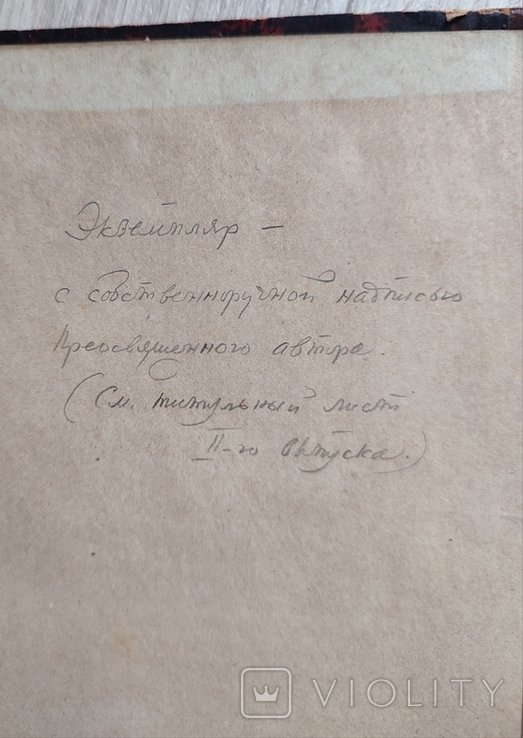 Экземпляр –
с собственноручной надписью
Преосвященного автора.
(См. титульный лист
II-го выпуска.)
VIOLITY